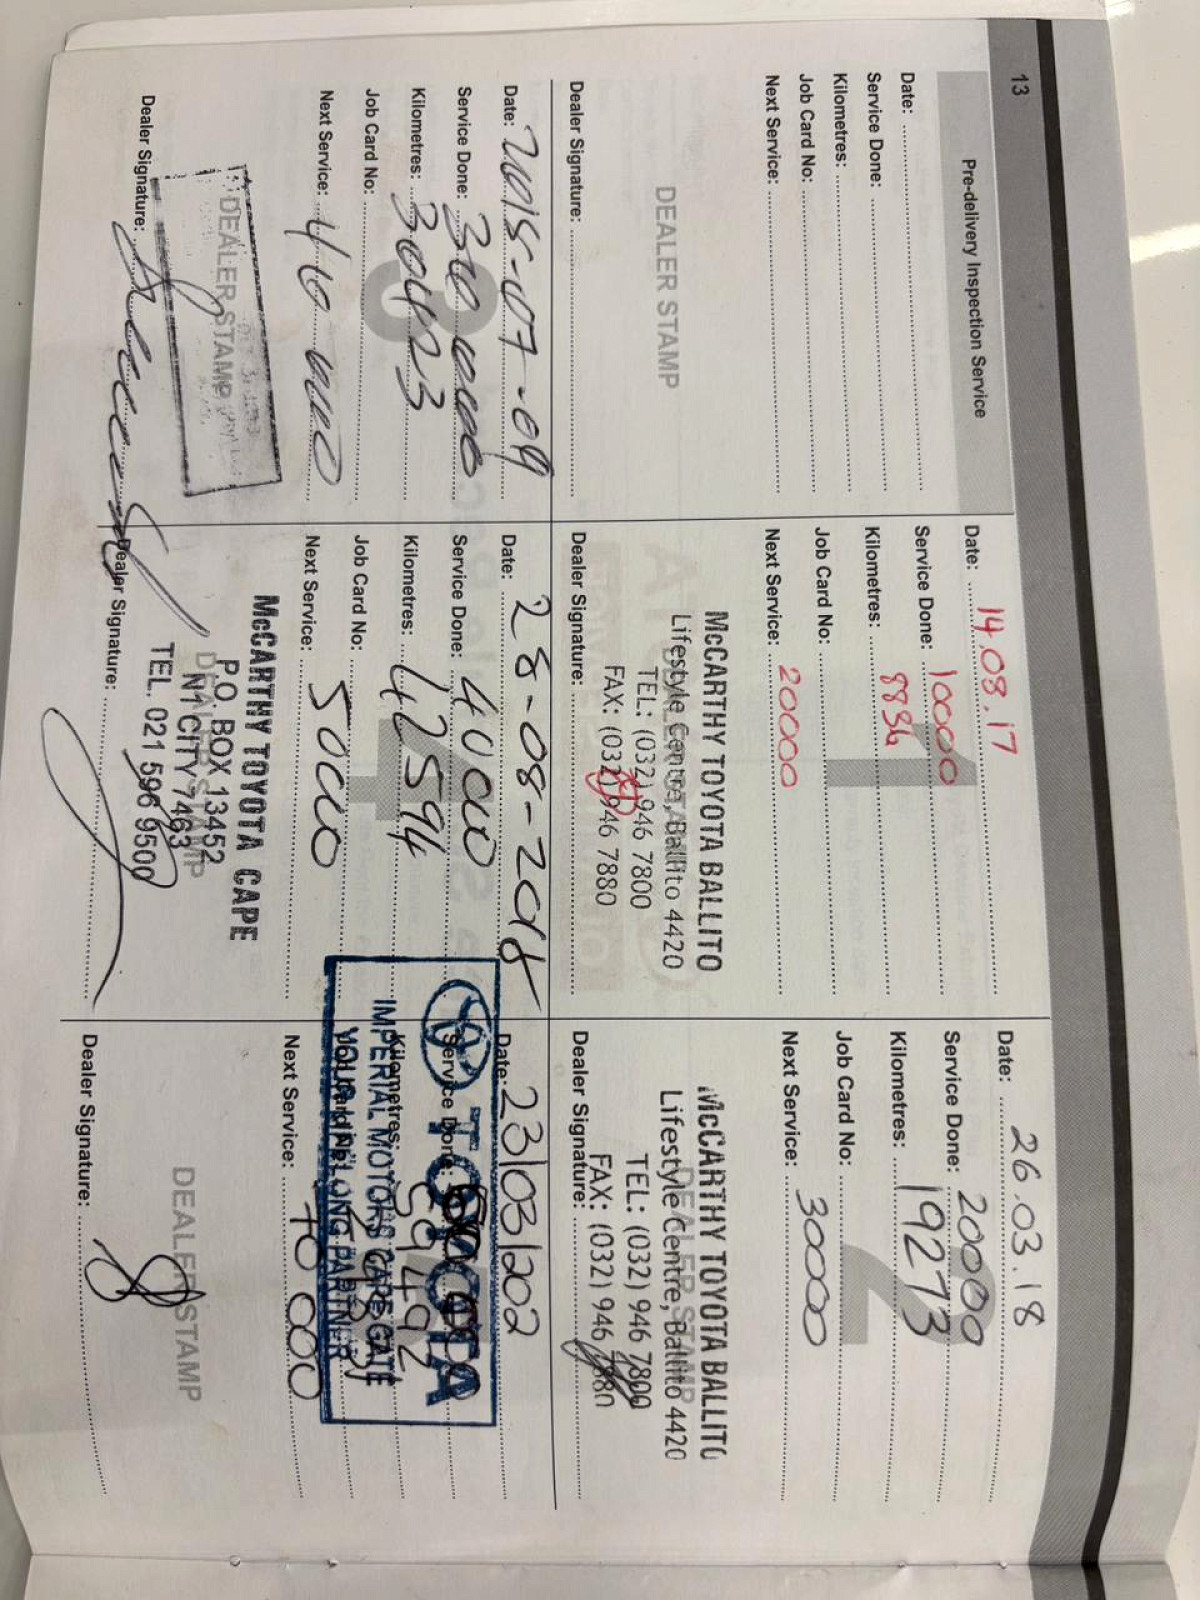 13
Pre-delivery Inspection Service
Date:
Service Done:
Kilometres:
Job Card No:
Next Service:
DEALER STAMP
Dealer Signature:
1
Date: 14.08.17
Service Done: 10000
Kilometres: 8836
Job Card No:
Next Service: 20000
McCARTHY TOYOTA BALLITO
Lifestyle Centre, Ballito 4420
TEL: (032) 946 7800
FAX: (032) 946 7880
Dealer Signature:
2
Date: 26.03.18
Service Done: 20000
Kilometres: 19273
Job Card No:
Next Service: 30000
McCARTHY TOYOTA BALLITO
DEALER STAMP
Lifestyle Centre, Ballito 4420
TEL: (032) 946 7800
FAX: (032) 946 7880
Dealer Signature:
3
Date: 2018-07-09
Service Done: 30 000
Kilometres: 30423
Job Card No:
Next Service: 40 000
DEALER STAMP
Dealer Signature:
4
Date: 28-08-2018
Service Done: 40000
Kilometres: 42594
Job Card No:
Next Service: 50000
McCARTHY TOYOTA CAPE
P.O. BOX 13452
DEALER STAMP
N1 CITY 7463
TEL. 021 596 9500
Dealer Signature:
Date: 23/03/202
Service Done:
TOYOTA
Kilometres: 59492
IMPERIAL MOTORS CAPE GATE
YOUR LIFELONG PARTNER
Next Service: 70 000
DEALER STAMP
Dealer Signature: